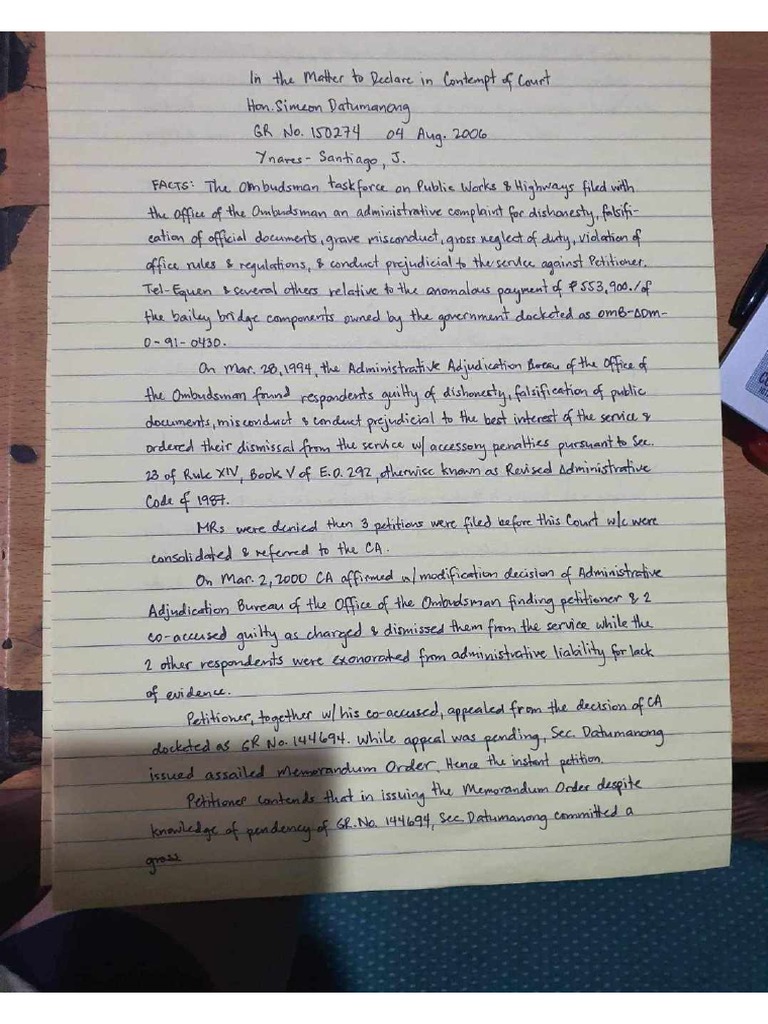 In the Matter to Declare in Contempt of Court
Hon. Simeon Datumanong
GR No. 150274 04 Aug. 2006
Ynares-Santiago, J.
FACTS: The Ombudsman taskforce on Public Works & Highways filed with
the Office of the Ombudsman an administrative complaint for dishonesty, falsifi-
cation of official documents, grave misconduct, gross neglect of duty, violation of
office rules & regulations, & conduct prejudicial to the service against Petitioner.
Tel-Equen & several others relative to the anomalous payment of ₱553,900./of
the bailey bridge components owned by the government docketed as OMB-ADM-
0-91-0430.
On Mar. 28, 1994, the Administrative Adjudication Bureau of the Office of
the Ombudsman found respondents guilty of dishonesty, falsification of public
documents, misconduct & conduct prejudicial to the best interest of the service &
ordered their dismissal from the service w/ accessory penalties pursuant to Sec.
23 of Rule XIV, Book V of E.O. 292, otherwise known as Revised Administrative
Code of 1987.
MRs were denied then 3 petitions were filed before this Court w/c were
consolidated & referred to the CA.
On Mar. 2, 2000 CA affirmed w/ modification decision of Administrative
Adjudication Bureau of the Office of the Ombudsman finding petitioner & 2
co-accused guilty as charged & dismissed them from the service while the
2 other respondents were exonorated from administrative liability for lack
of evidence.
Petitioner, together w/ his co-accused, appealed from the decision of CA
docketed as GR No. 144694. While appeal was pending, Sec. Datumanong
issued assailed Memorandum Order. Hence the instant petition.
Petitioner contends that in issuing the Memorandum Order despite
knowledge of pendency of GR. No. 144694, Sec. Datumanong committed a
gross